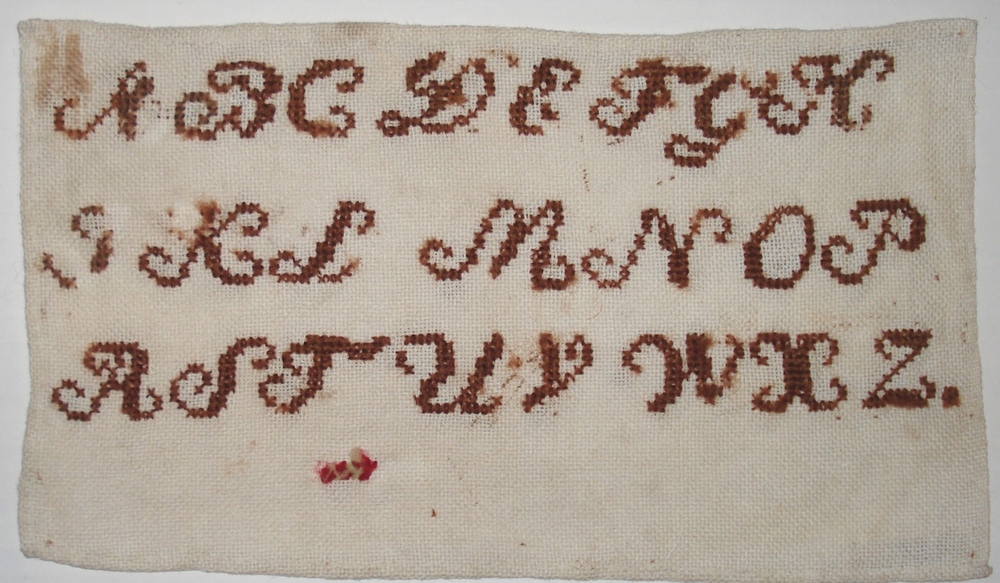 A B C D E F G H
I K L M N O P
R S T U V W X Z.